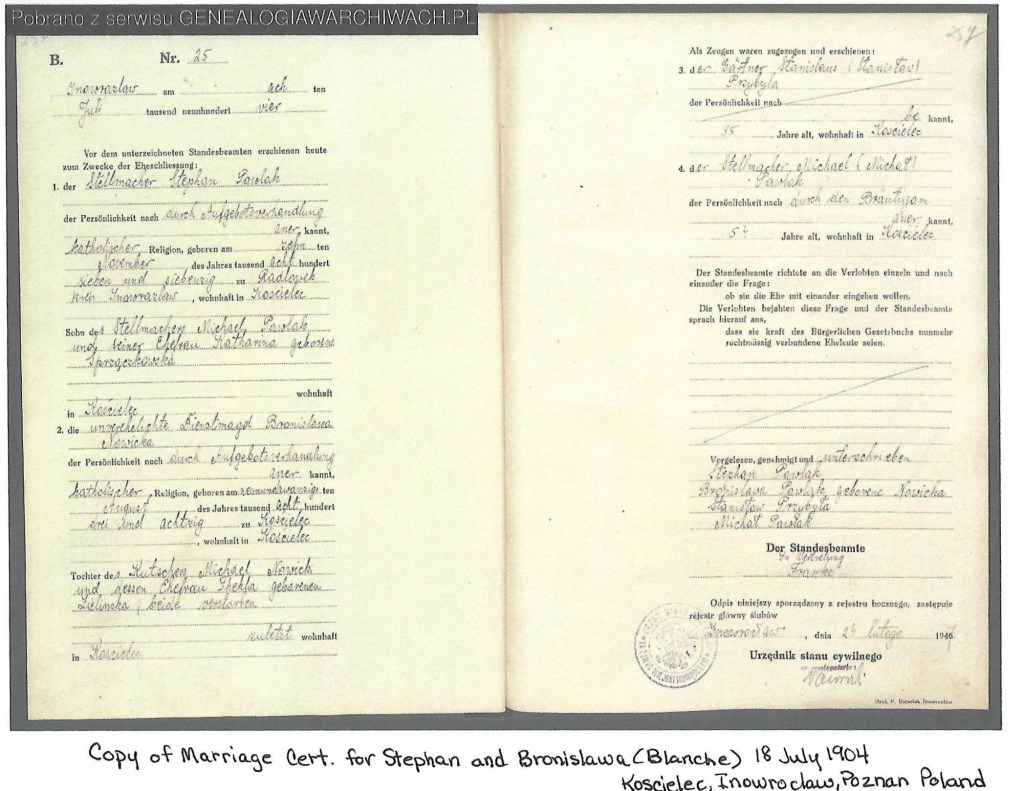 Pobrano z serwisu GENEALOGIAWARCHIWACH.PL
B. Nr. 25
Inowrazlaw am ach ten
Juli tausend neunhundert vier
Vor dem unterzeichneten Standesbeamten erschienen heute
zum Zwecke der Eheschliessung:
1. der Stellmacher Stephan Pawlak
der Persönlichkeit nach durch Aufgebotsverhandlung
aner kannt,
katholischer Religion, geboren am zehn ten
November des Jahres tausend acht hundert
sieben und siebenzig zu Radlowek
kreis Inowrazlaw, wohnhaft in Kościelec
Sohn des Stellmachers Michael Pawlak
und seiner Ehefrau Katharina geborene
wohnhaft
in Kościelec
2. die unverehelichte Dienstmagd Bronislawa
Nowicka
der Persönlichkeit nach durch Aufgebotsverhandlung
aner kannt,
katholischer Religion, geboren am neunundzwanzigs ten
August des Jahres tausend acht hundert
drei und achtzig zu Kościelec
, wohnhaft in Kościelec
Tochter des Kutschers Michael Nowicki
und dessen Ehefrau Thekla geborenen
Zielinska, beide verstorben
zuletzt wohnhaft
in Kościelec
287
Als Zeugen waren zugezogen und erschienen:
3. der Gärtner Stanislaus (Stanisław)
Przybyla
der Persönlichkeit nach
be kannt,
35 Jahre alt, wohnhaft in Kościelec
4. der Stellmacher Michael (Michał)
Pawlak
der Persönlichkeit nach durch den Bräutigam
aner kannt,
Jahre alt, wohnhaft in Kościelec
Der Standesbeamte richtete an die Verlobten einzeln und nach
einander die Frage:
ob sie die Ehe mit einander eingehen wollen.
Die Verlobten bejahten diese Frage und der Standesbeamte
sprach hierauf aus,
dass sie kraft des Bürgerlichen Gesetzbuchs nunmehr
rechtmässig verbundene Eheleute seien.
Vorgelesen, genehmigt und unterschrieben
Stephan Pawlak
Bronislawa Pawlak, geborene Nowicka
Stanisław Przybyla
Michał Pawlak
Der Standesbeamte
In Vertretung
Franke
Odpis niniejszy sporządzony z rejestru bocznego, zastępuje
rejestr główny ślubów
Inowrocław, dnia 24 lutego 1947
Urzędnik stanu cywilnego
Copy of Marriage Cert. for Stephan and Bronislawa (Blanche) 18 July 1904
Koscielec, Inowroclaw, Poznan Poland